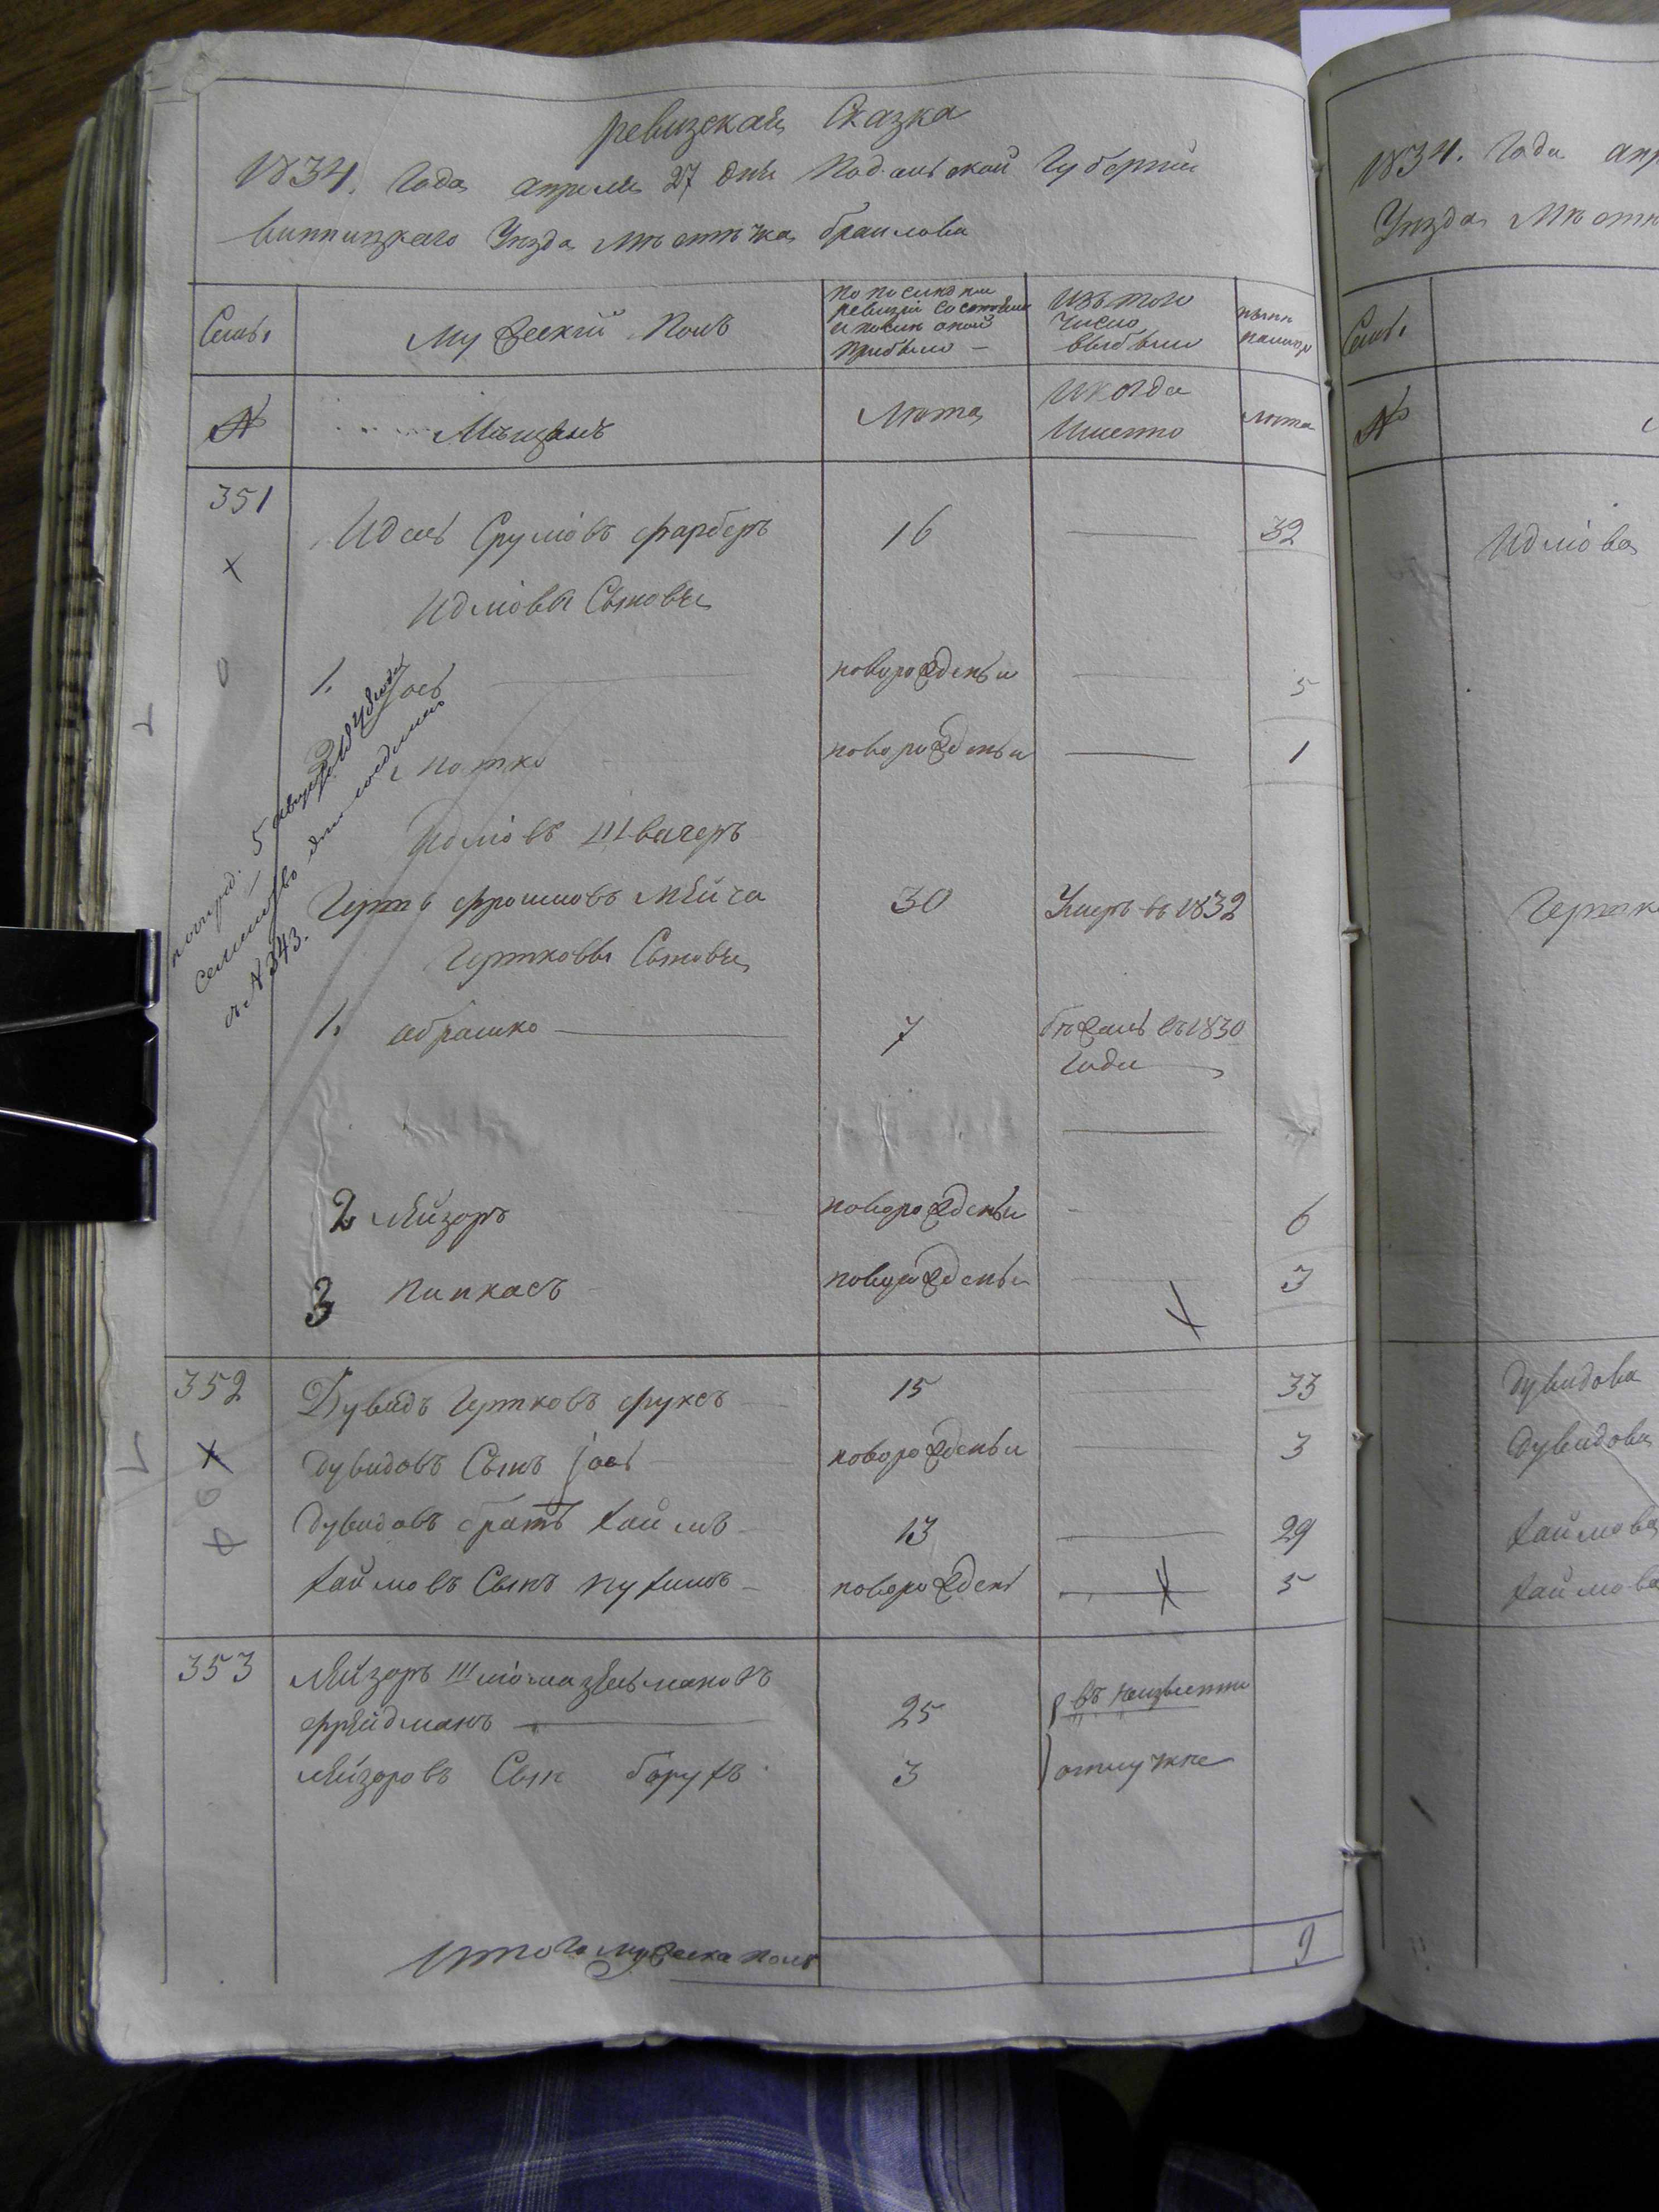 ревизская Сказка
1834. Года апреля 27 дня Подольской Губернии
винницкаго Уезда Мъстъчка браилова
Семьи
Мужеский Полъ
по последней
ревизіи состояло
и после оной
прибыло —
Изъ того
число
выбыли
ныне
налицо
№
Мъщанъ
Лета
Икогда
Именно
лета
351 Идель Срулювъ фарберъ 16 — 32
Идлювы Сыновья
1. Jось новорожденый — 5
2 мотко новорожденый — 1
Идлювъ Швагеръ
Гершко фроимовъ 30 Умеръ въ 1832
Гершковы Сыновья
1. абрамко — 7 бѣжалъ въ 1830
Года
2 лейзоръ новорожденый 6
3 пинкасъ новорожденый 3
352 Дувидъ Гершковъ фуксъ 15 33
Дувидовъ Сынъ Jось новорожденый 3
Дувидовъ братъ Хаимъ 13 — 29
Хаимовъ Сынъ нухимъ новорожден — 5
353 Лейзоръ Шлюмазельмановъ
фрейдманъ — 25 въ неизвестно
лейзоровъ Сын борухъ 3 отлучке
Итого мужеска пола 9
5 августа
Семейство
съ № 343.
1834. Года апр
Уезда Мъстъ
Семьи
№
Идлюва
Гершко
Дувидова
Дувидова
Хаимова
Хаимова